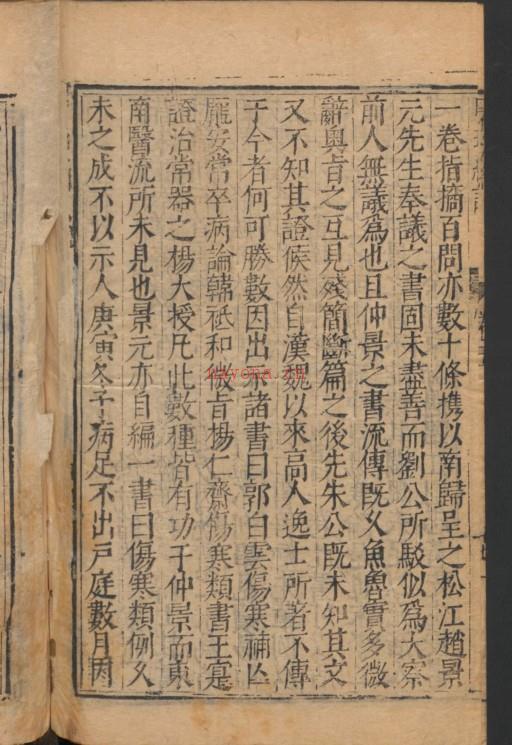 一卷指摘百問亦數十條携以南歸呈之松江趙景
元先生奉議之書固未盡善而劉公所駁似爲大察
前人無議爲也且仲景之書流傳既乆魚魯實多微
辭奥旨之互見殘簡斷篇之後先朱公既未知其文
又不知其證候然自漢魏以來高人逸士所著不傳
于今者何可勝數因出示諸書曰郭白雲傷寒補亾
龐安常卒病論韓祗和微旨楊仁齋傷寒類書王寔
證治常器之楊大授凡此數種皆有功于仲景而東
南醫流所未見也景元亦自編一書曰傷寒類例乆
未之成不以示人庚寅冬予病足不出戸庭數月因